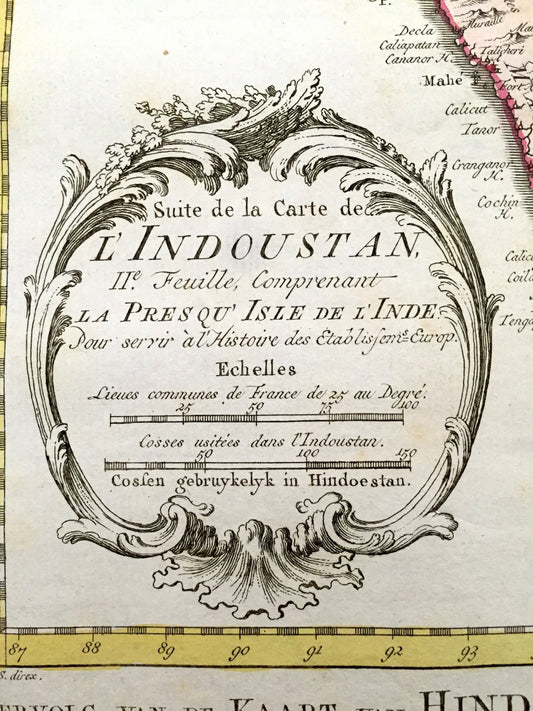 Decla
Caliapatan
Cananor H.
Mahé
Talicheri
Calicut
Tanor
Cranganor
H.
Cochin
H.
Suite de la Carte de
L'INDOUSTAN,
IIe. Feuille, Comprenant
LA PRESQU' ISLE DE L'INDE,
Pour servir à l'Histoire des Etablissemts. Europ.
Echelles
Lieues communes de France de 25 au Degré.
25 50 75 100
Cosses usitées dans l'Indoustan.
50 100 150
Cossen gebruykelyk in Hindoestan.
87 88 89 90 91 92 93
S. direx.
VERVOLG VAN DE KAART VAN HIND